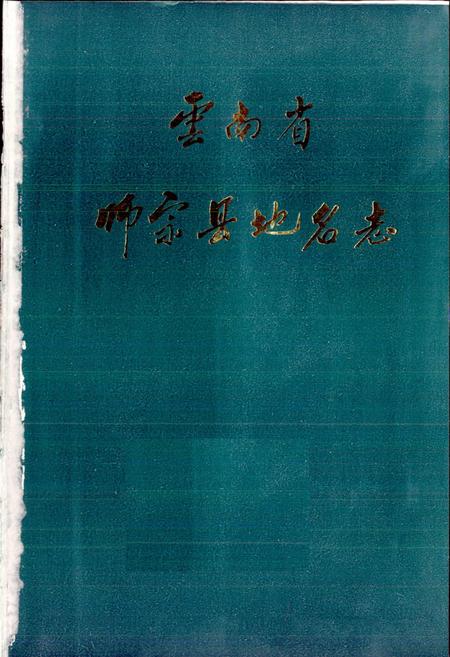 雲南省
师宗县地名志